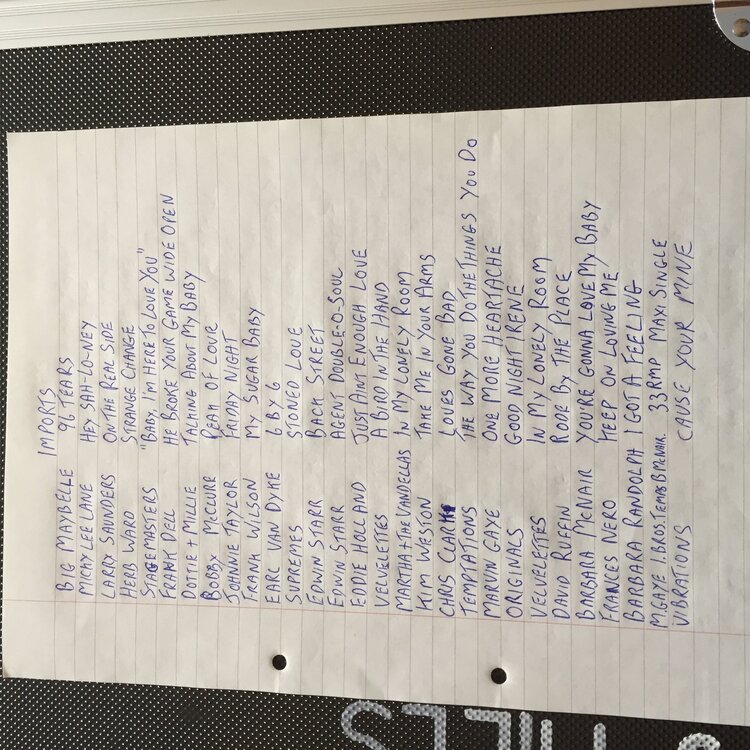 IMPORTS
BIG MAYBELLE 96 TEARS
MICKY LEE LANE HEY SAH-LO-NEY
LARRY SAUNDERS ON THE REAL SIDE
HERB WARD STRANGE CHANGE
STAGEMASTERS "BABY, I'M HERE TO LOVE YOU"
FRANK DELL HE BROKE YOUR GAME WIDE OPEN
DOTTIE + MILLIE TALKING ABOUT MY BABY
BOBBY McCLURE PEAK OF LOVE
JOHNNIE TAYLOR FRIDAY NIGHT
FRANK WILSON MY SUGAR BABY
EARL VAN DYKE 6 BY 6
SUPREMES STONED LOVE
EDWIN STARR BACK STREET
EDWIN STARR AGENT DOUBLE-O-SOUL
EDDIE HOLLAND JUST AINT ENOUGH LOVE
VELVELETTES A BIRD IN THE HAND
MARTHA + THE VANDELLAS IN MY LONELY ROOM
KIM WESTON TAKE ME IN YOUR ARMS
CHRIS CLARK LOVES GONE BAD
TEMPTATIONS THE WAY YOU DO THE THINGS YOU DO
MARVIN GAYE ONE MORE HEARTACHE
ORIGINALS GOOD NIGHT IRENE
VELVELETTES IN MY LONELY ROOM
DAVID RUFFIN RODE BY THE PLACE
BARBARA McNAIR YOU'RE GONNA LOVE MY BABY
FRANCES NERO KEEP ON LOVING ME
BARBARA RANDOLPH I GOT A FEELING
M.GAYE I.BROS.TEMPS B.McNAIR. 33 RMP MAXI SINGLE
VIBRATIONS CAUSE YOUR MINE